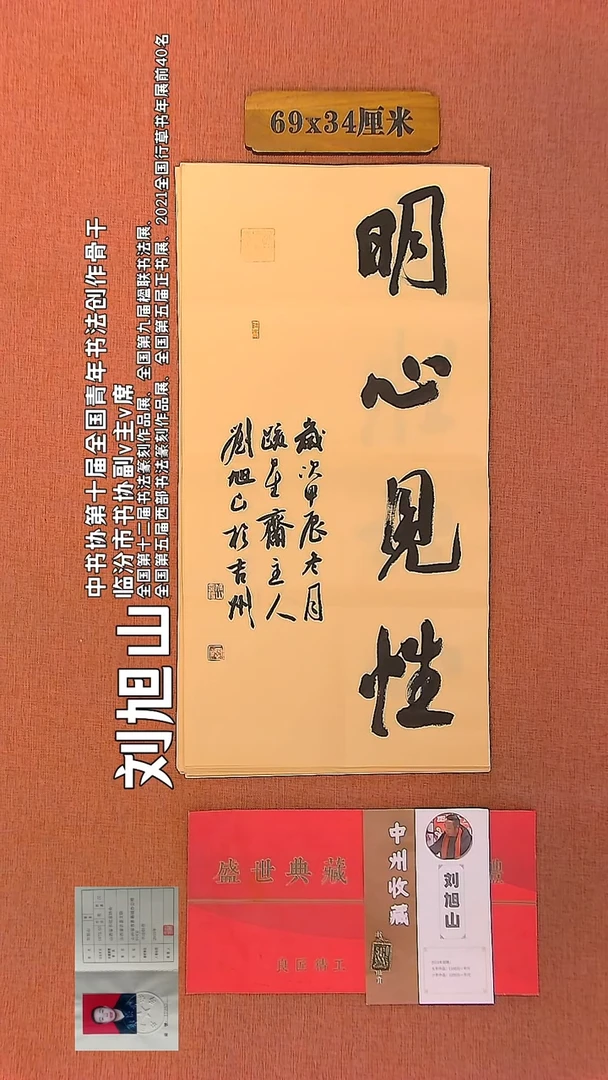 69x34厘米
明心見性
歲次甲辰冬月
星齋主人
劉旭山於吉州
中书协第十届全国青年书法创作骨干
临汾市书协副v主v席
全国第十二届书法篆刻作品展、全国第九届楹联书法展、
全国第五届西部书法篆刻作品展、全国第五届正书展、2021全国行草书年展前40名
刘旭山
盛世典藏
中州收藏
刘旭山